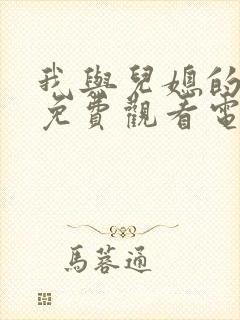 我與兒媳的
免費觀看電
馬蓉通